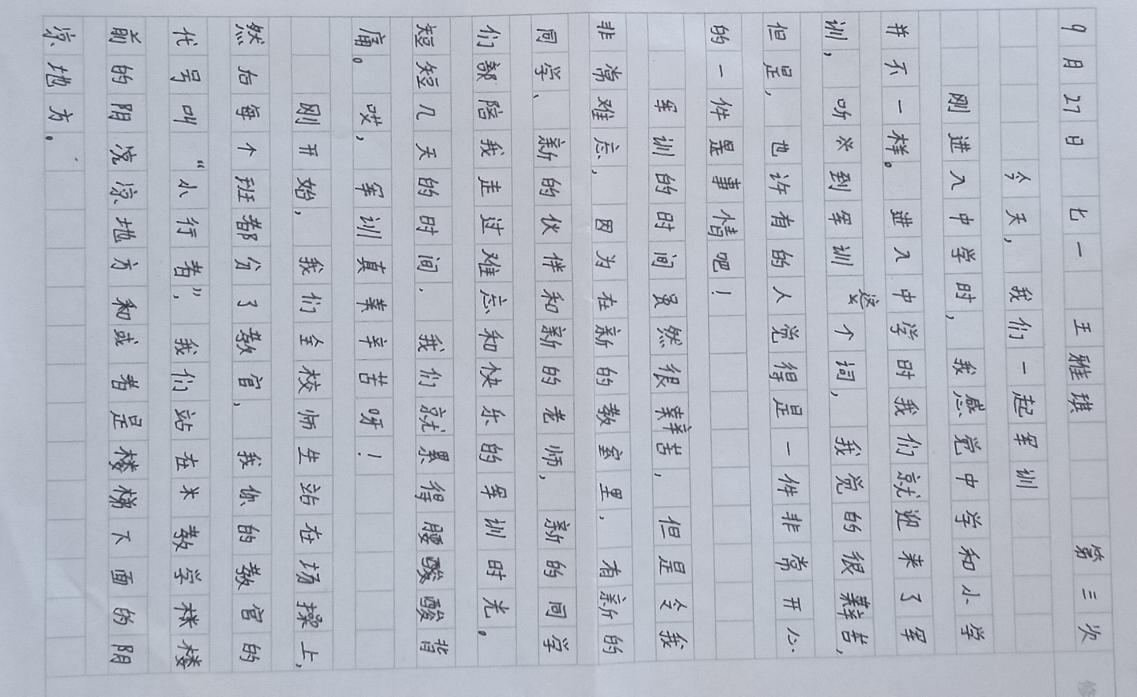 9月27日 七一 王雅琪 第三次
今天，我们一起军训
刚进入中学时，我感觉中学和小学
并不一样。进入中学时我们就迎来了军
训，听到军训这个词，我觉的很辛苦，
但是，也许有的人觉得是一件非常开心
的一件是事情吧！
军训的时间虽然很辛苦，但是令我
非常难忘，因为在新的教室里，有新的
同学、新的伙伴和新的老师，新的同学
们都陪我走过难忘和快乐的军训时光。
短短几天的时间．我们就累得腰酸酸背
痛。哎，军训真辛苦呀！
刚开始，我们全校师生站在场操上，
然后每个班都分了教官，我们的教官的
代号叫“小行者”，我们站在教学楼
前的阴凉地方和或者是楼梯下面的阴
凉地方。